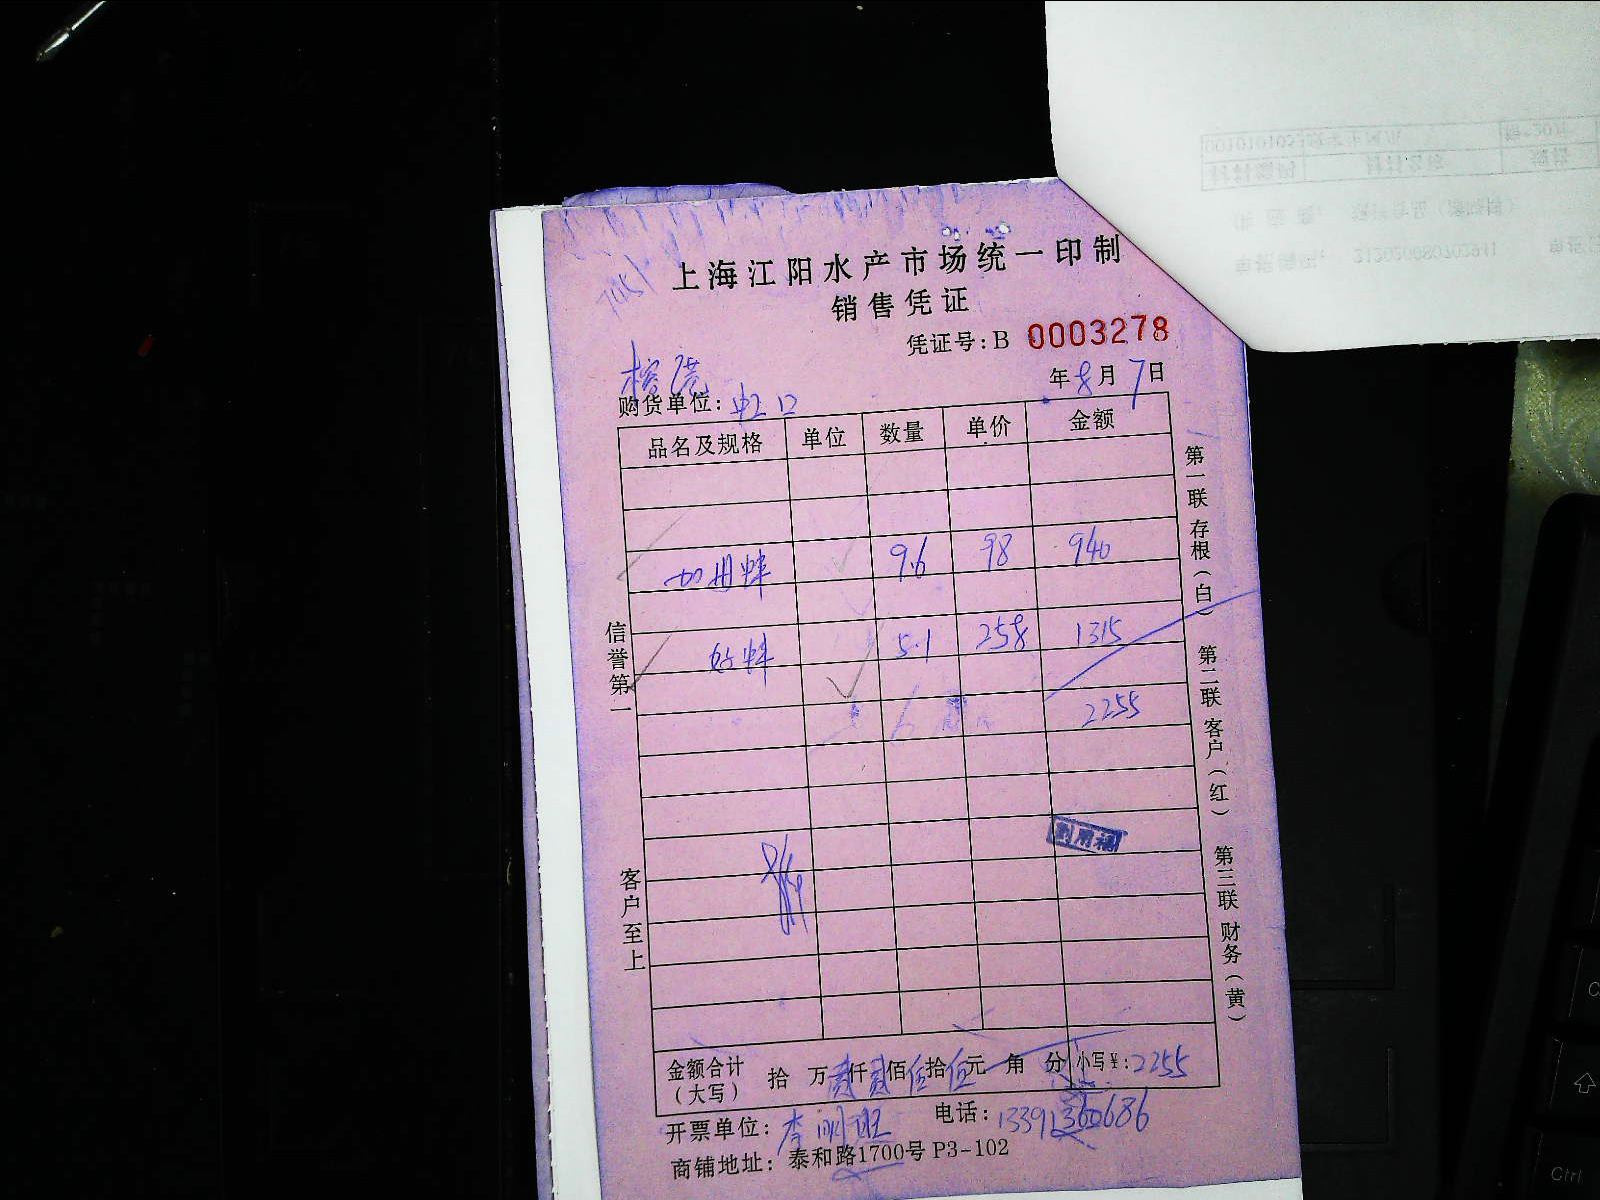 上海江阳水产市场统一印制
销售凭证
凭证号:B 0003278
年8月7日
购货单位: 虹口
品名及规格 单位 数量 单价 金额
加月蚌 9.6 98 940
蚌 5.1 258 1315
2255
信誉第一
客户至上
第一联 存根(白)
第二联 客户(红)
第三联 财务(黄)
金额合计(大写) 拾 万贰仟贰佰伍拾伍元 角 分 小写¥:2255
开票单位: 李明班 电话: 13391360686
商铺地址: 泰和路1700号 P3-102
Ctrl